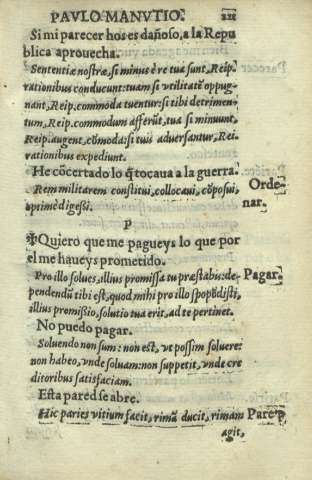 PAVLO MANVTIO. 221
Si mi parecer hos es dañoso, a la Repu
blica aprouecha.
Sententiæ nostræ, si minus è re tua sunt, Reip.
rationibus conducunt: tuam si vtilitatē oppug-
nant, Reip. commoda tuentur: si tibi detrimen-
tum, Reip. commodum afferūt, tua si minuunt,
Reip. augent, cōmoda: si tuis aduersantur, Rei.
rationibus expediunt.
He cōcertado lo q̃ tocaua a la guerra. Orde-
Rem militarem constitui, collocaui, cōposui, nar.
optime digessi.
P
Quiero que me pagueys lo que por
el me haueys prometido.
Pro illo solues, illius promissa tu præstabis: de- Pagar.
pendendū tibi est, quod mihi pro illo spopōdisti,
illius promissio, solutio tua erit, ad te pertinet.
No puedo pagar.
Soluendo non sum: non est, vt possim soluere:
non habeo, vnde soluam: non suppetit, vnde cre
ditoribus satisfaciam.
Esta pared se abre.
Hic paries vitium facit, rimā ducit, rimam Pare
agit,